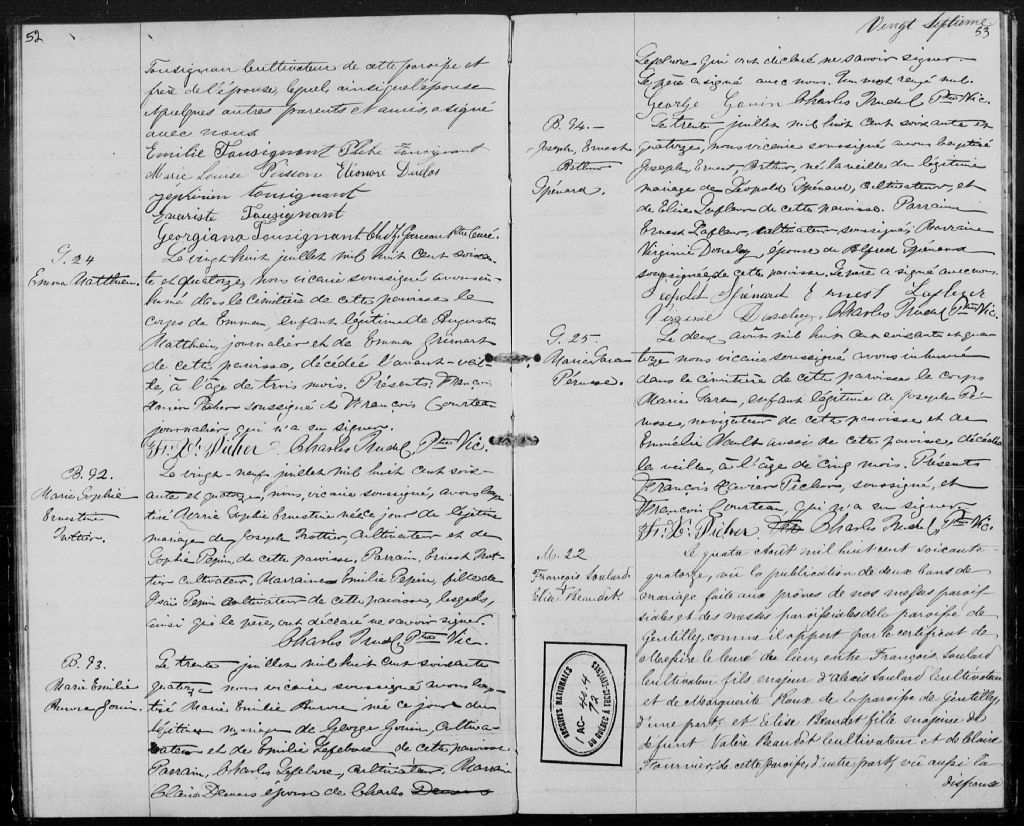 52
Tousignan Cultivateur de cette paroisse et
frère de l'épouse, lequel ainsi que l'épouse
et quelques autres parents et amis, a signé
avec nous
Emilie Tousignant Phebé Tousignant
Marie Louise Poisson Eléonore
zéphirien tousignant
Evariste Tousignant
Georgiana Tousignant Ptre Curé.
S. 24
Emma Matthieu.
Le vingt huit juillet mil huit cent soixan-
te et quatorze, nous vicaire soussigné avons in-
humé dans le cimitière de cette paroisse le
corps de Emma, enfant légitime de Augustin
Matthieu, journalier et de Emma
de cette paroisse, décédée l'avant-veil-
le, à l'âge de trois mois. Présents: François
Xavier Picher soussigné et François Courteau
journalier qui n'a su signer.
Fr. X. Picher Charles Trudel, Ptre Vic.
B. 92.
Marie Sophie
Ernestine
Trottier.
Le vingt-neuf juillet mil huit cent soix-
ante et quatorze, nous, vicaire soussigné, avons bap-
tisé Marie Sophie Ernestine née ce jour du légitime
mariage de Joseph Trottier, Cultivateur et de
Sophie Pepin, de cette paroisse. Parrain, Ernest Trot-
tier Cultivateur, Marraine Emilie Pepin, fille de
Isaïe Pepin Cultivateur de cette paroisse, lesquels,
ainsi que le père, ont déclaré ne savoir signer.
Charles Trudel, Ptre Vic.
B. 93.
Marie Emilie
Gouin.
Le trente juillet mil huit cent soixante
quatorze nous vicaire soussigné avons bap-
tisé Marie Emilie née ce jour du
légitime mariage de George Gouin, Cultiva-
teur et de Emilie Lefebvre de cette paroisse.
Parrain, Charles Lefebvre, Cultivateur, Marraine
Claire Demers épouse de Charles Demers
Vingt Septième
53
Lefebvre qui ont déclaré ne savoir signer.
Le père a signé avec nous. Un mot rayé nul.
George Gouin Charles Trudel Ptre Vic.
B. 94.
Joseph, Ernest
Arthur
Spénard.
Le trente juillet mil huit cent soixante et
quatorze, nous vicaire soussigné avons baptisé
Joseph, Ernest, Arthur, né la veille du légitime
mariage de Léopold Spénard, cultivateur, et
de Elise Lafleur de cette paroisse. Parrain
Ernest Lafleur, cultivateur soussigné, Marraine
Virginie épouse de Alfred Spénard
soussignée de cette paroisse. Le père a signé avec nous.
Léopold Spénard Ernest Lafleur
Virginie Charles Trudel Ptre Vic.
S. 25.
Marie Sara
Pérusse.
Le deux août mil huit cent soixante et qua-
torze nous vicaire soussigné avons inhumé
dans le cimitière de cette paroisse le corps
Marie Sara, enfant légitime de Joseph Pé-
russe, navigateur de cette paroisse et de
Emmélie aussi de cette paroisse, décédée
la veille, à l'âge de cinq mois. Présents
François Xavier Pichers, soussigné, et
François Courteau, qui n'a su signer
Fr. X. Picher Charles Trudel, Ptre Vic.
M. 22
François Soulard
&
Elise Beaudet.
Le quatre Aout mil huit cent soixante-
quatorze, vû la publication de deux bans de
mariage faite aux prônes de nos messes parois-
siales et des messes paroissiales de la paroisse de
Gentilly, comme il appert par le certificat de
Messire le Curé du lieu, entre François Soulard
Cultivateur fils majeur d'Alexis Soulard Cultivateur
et de Marguerite Roux de la paroisse de Gentilly,
d'une part, et Elise Beaudet fille majeure de
défunt Valère Beaudet Cultivateur et de Claire
Fournier, de cette paroisse, d'autre part, vu aussi la
dispense
ARCHIVES NATIONALES
1 AC-404
72
DU QUÉBEC À TROIS-RIVIÈRES